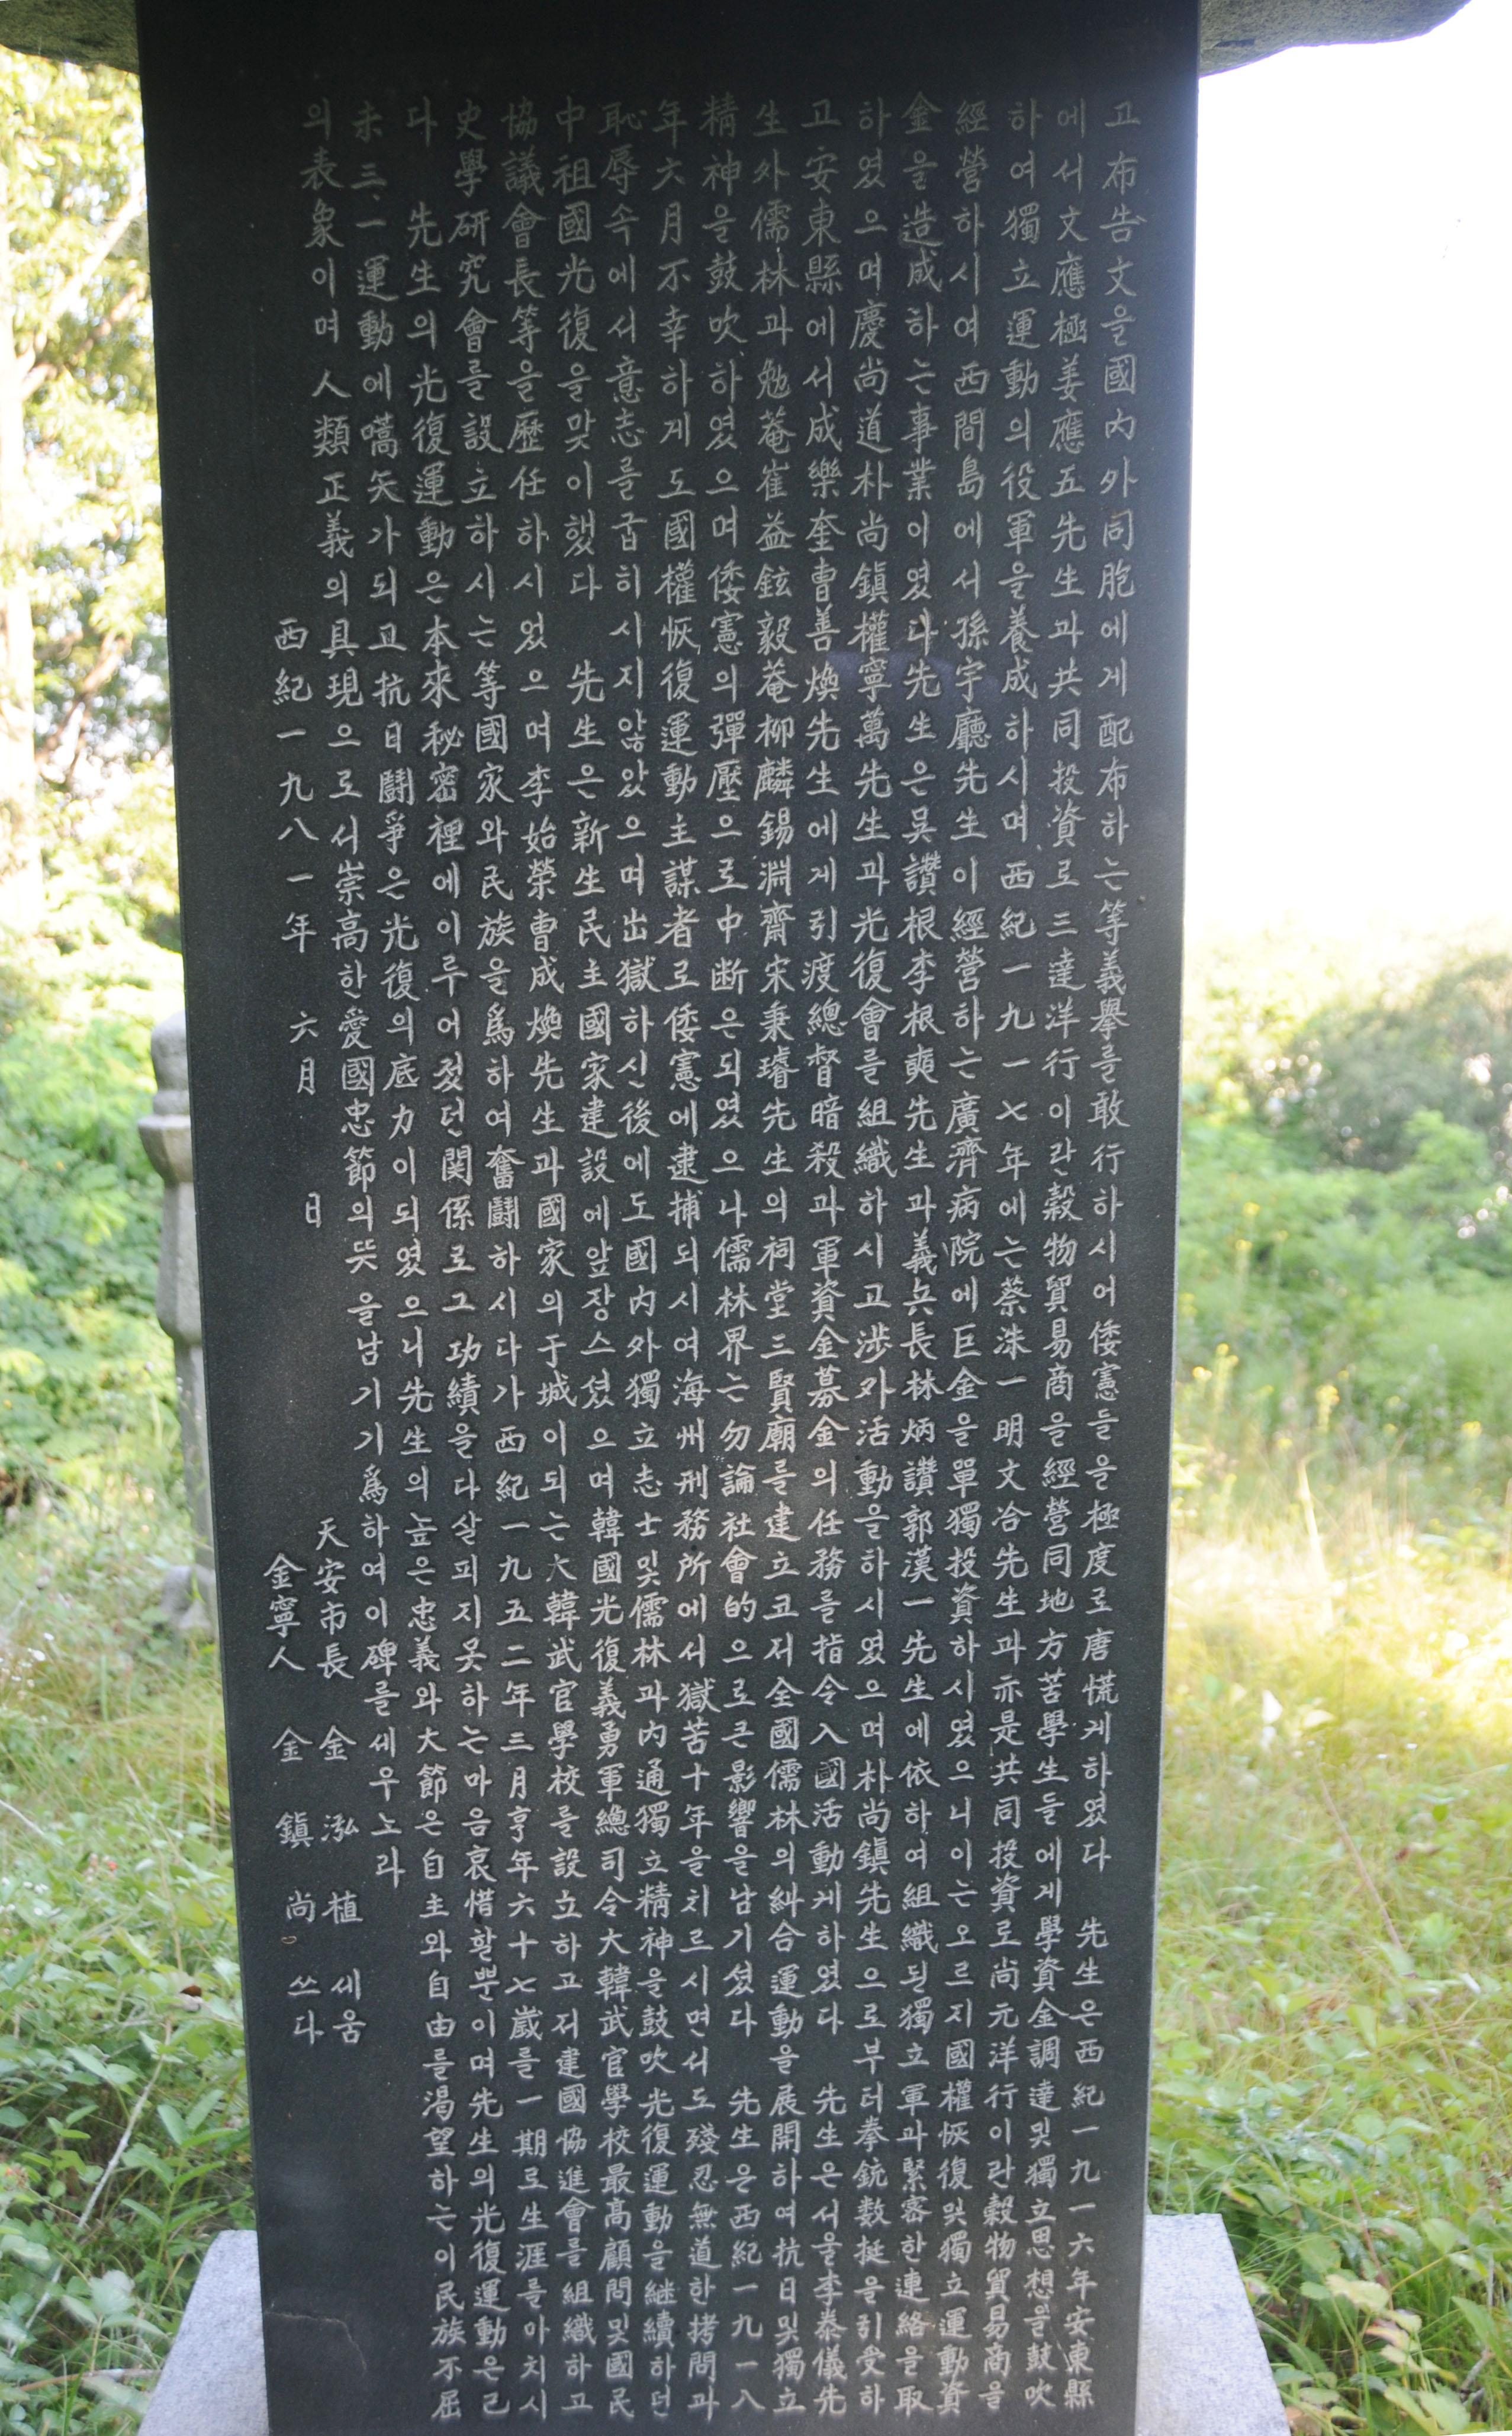 고布告文을國內外同胞에게配布하는等義擧를敢行하시어倭憲들을極度로唐慌케하였다 先生은西紀一九一六年安東縣
에서文應極姜應五先生과共同投資로三達洋行이란穀物貿易商을經營同地方苦學生들에게學資金調達및獨立思想을鼓吹
하여獨立運動의役軍을養成하시며西紀一九一七年에는蔡洙一明文洽先生과亦是共同投資로尙元洋行이란穀物貿易商을
經營하시여西間島에서孫宇廳先生이經營하는廣濟病院에巨金을單獨投資하시였으니이는오르지國權恢復및獨立運動資
金을造成하는事業이였다先生은吳讚根李根奭先生과義兵長林炳讚郭漢一先生에依하여組織된獨立軍과緊密한連絡을取
하였으며慶尙道朴尙鎭權寧萬先生과光復會를組織하시고涉外活動을하시였으며朴尙鎭先生으로부터拳銃数挺을引受하
고安東縣에서成樂奎曺善煥先生에게引渡總督暗殺과軍資金募金의任務를指令入國活動게하였다 先生은서울李泰儀先
生外儒林과勉菴崔益鉉毅菴柳麟錫淵齋宋秉璿先生의祠堂三賢廟를建立고저全國儒林의糾合運動을展開하여抗日및獨立
精神을鼓吹하였으며倭憲의彈壓으로中断은되였으나儒林界는勿論社會的으로큰影響을남기셨다 先生은西紀一九一八
年六月不幸하게도國權恢復運動主謀者로倭憲에逮捕되시여海州刑務所에서獄苦十年을치르시면서도殘忍無道한拷問과
恥辱속에서意志를굽히시지않았으며出獄하신後에도國內外獨立志士및儒林과內通獨立精神을鼓吹光復運動을継續하던
中祖國光復을맞이했다 先生은新生民主國家建設에앞장스셨으며韓國光復義勇軍總司令大韓武官學校最高顧問및國民
協議會長等을歷任하시었으며李始榮曺成煥先生과國家의于城이되는大韓武官學校를設立하고저建國協進會를組織하고
史學研究會를設立하시는等國家와民族을爲하여奮鬪하시다가西紀一九五二年三月享年六十七歲를一期로生涯를마치시
다 先生의光復運動은本來秘密裡에이루어젔던関係로그功績을다살피지못하는마음哀惜할뿐이며先生의光復運動은己
未三、一運動에嚆矢가되고抗日鬪爭은光復의底力이되였으니先生의높은忠義와大節은自主와自由를渴望하는이民族不屈
의表象이며人類正義의具現으로서崇高한愛國忠節의뜻을남기기爲하여이碑를세우노라
西紀一九八一年 六月 日
天安市長 金泓植 세움
金寧人 金鎭尙 쓰다